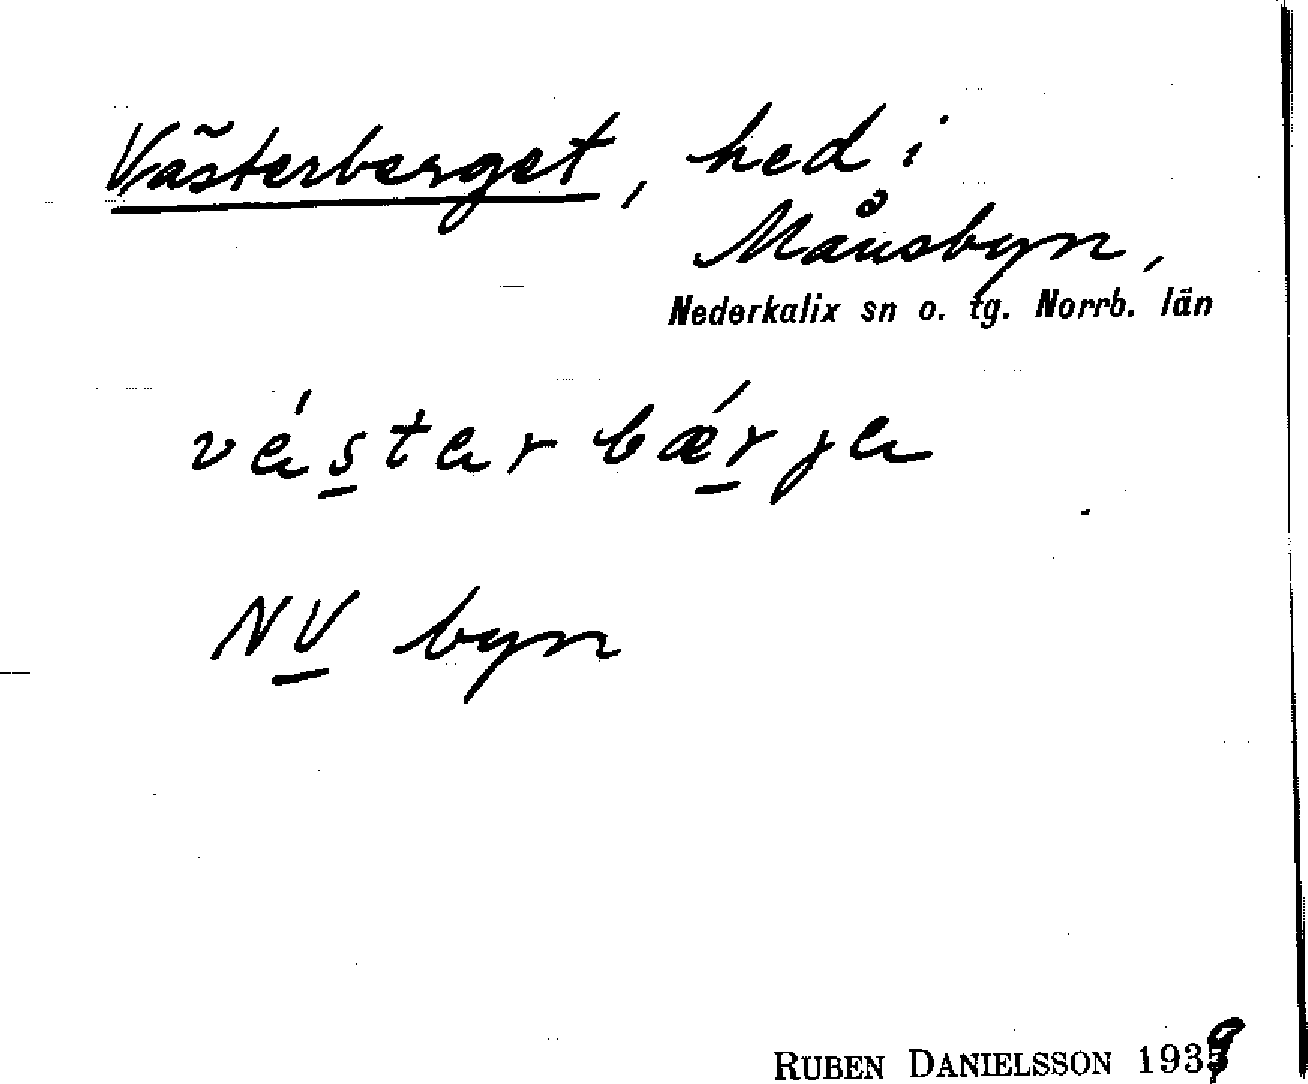 Västerberget, hed i
Månsbyn,
Nederkalix sn o. tg. Norrb. län
vá̱starbǽ̱rja
NV̱ byn
RUBEN DANIELSSON 1939